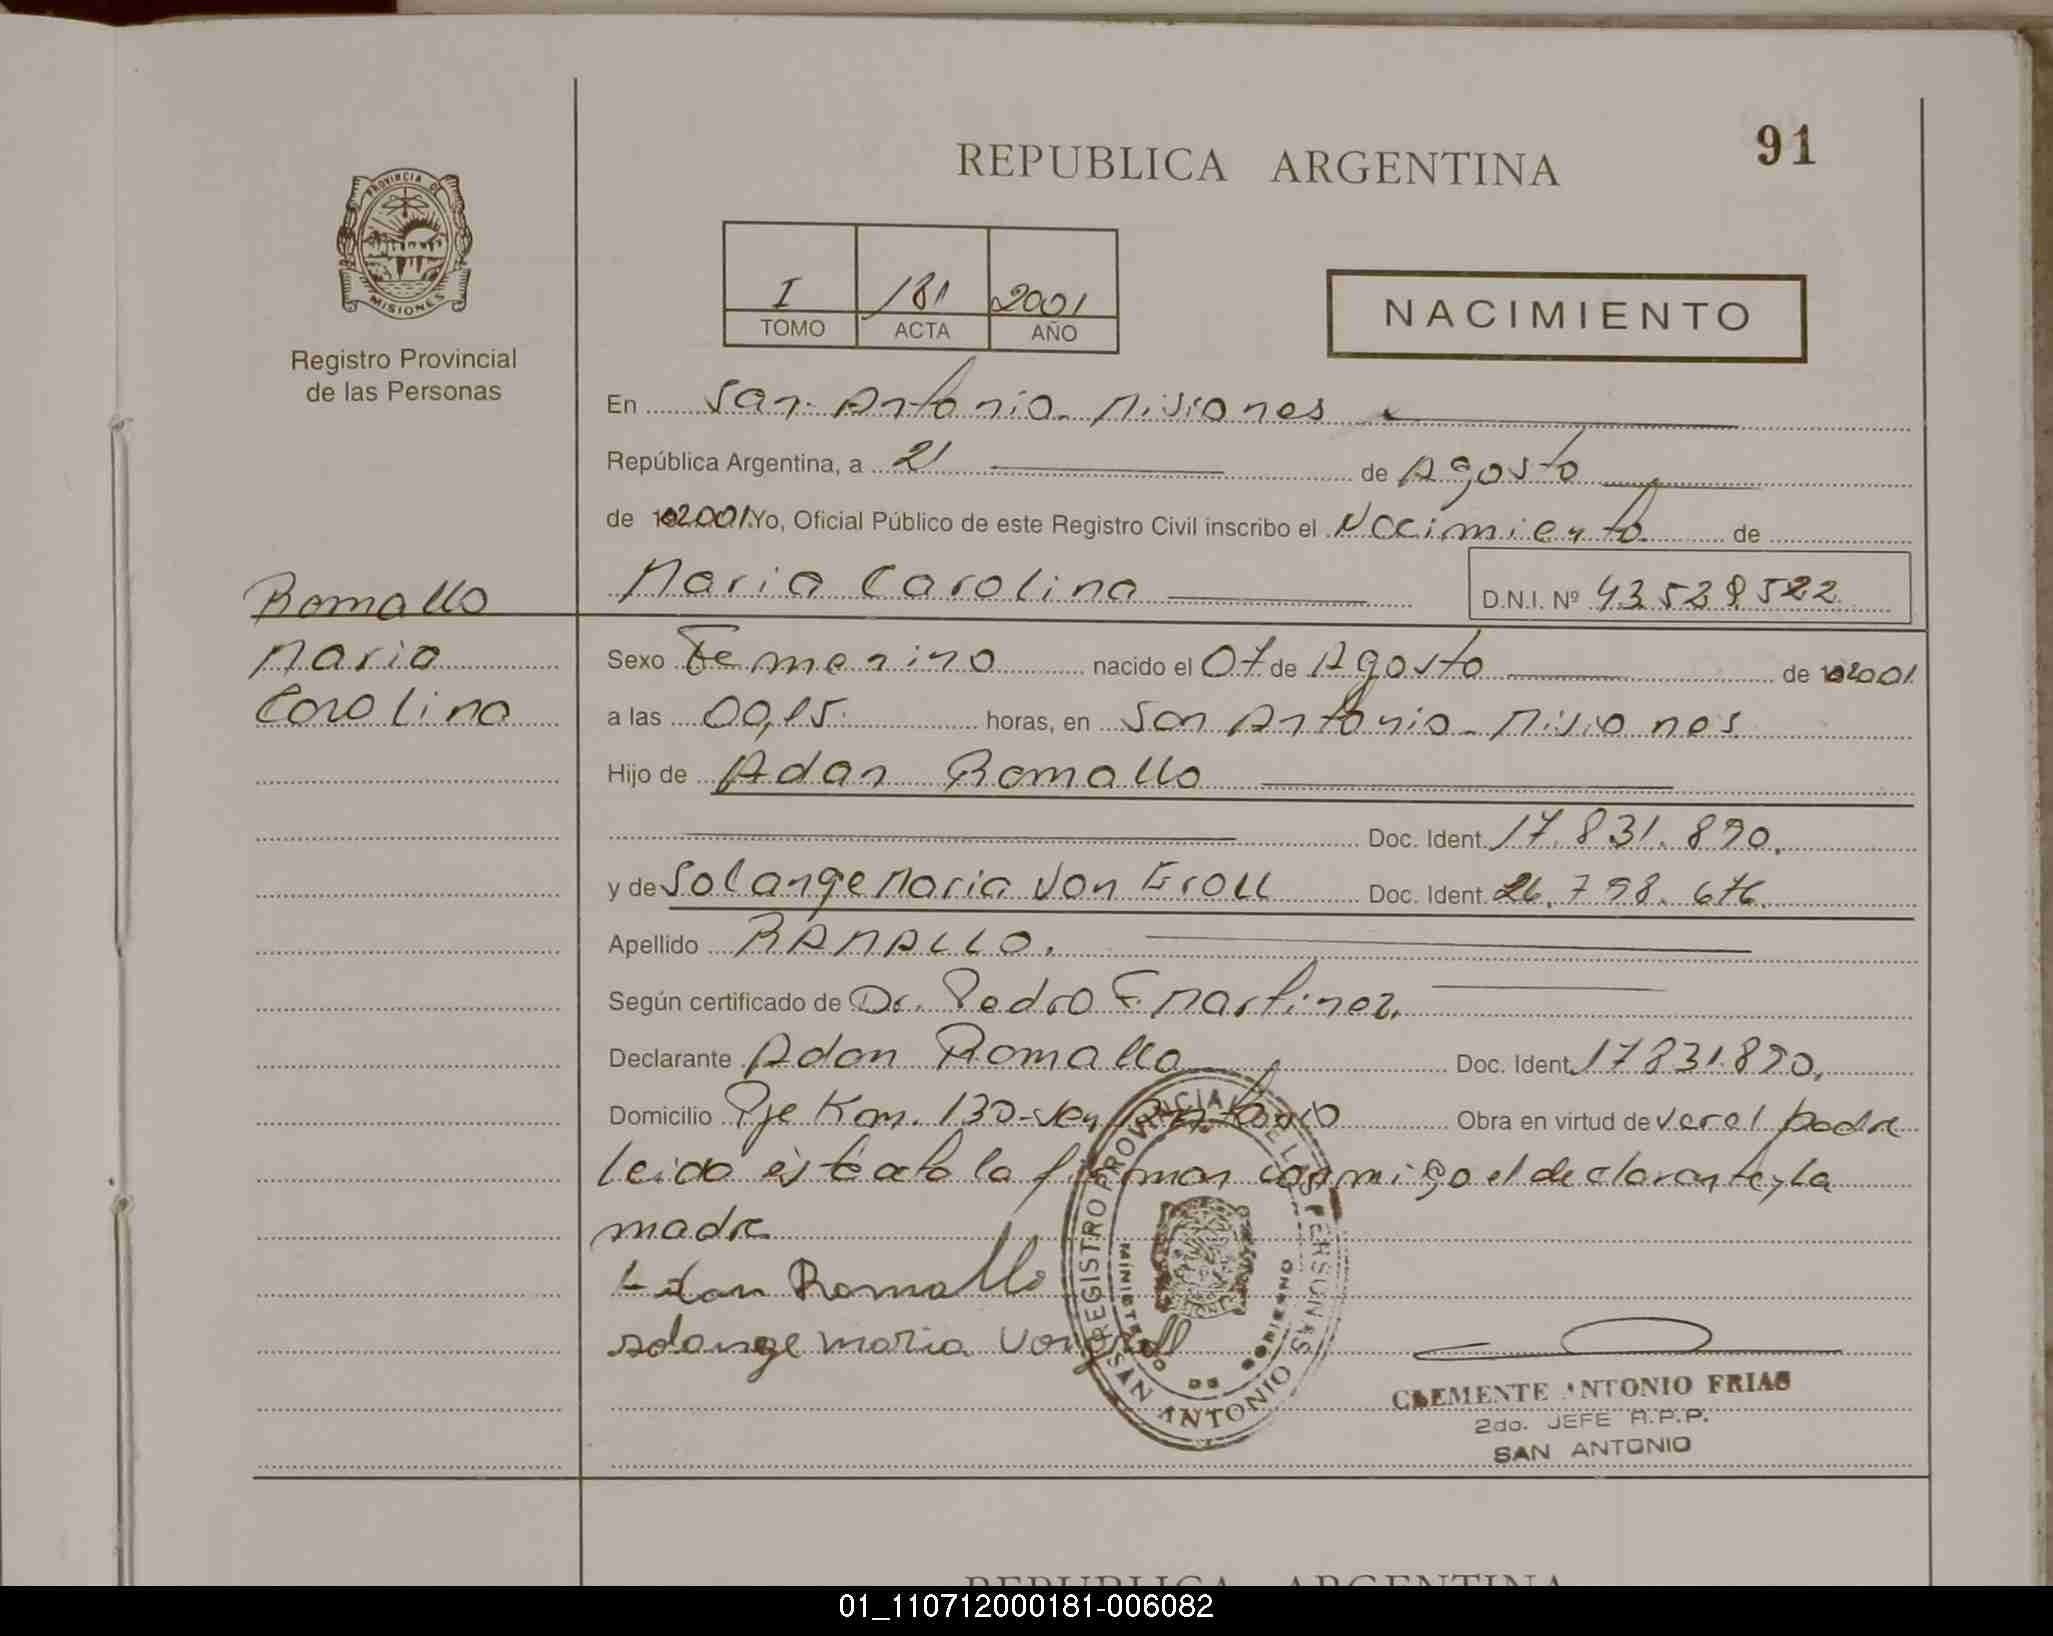 91
REPUBLICA ARGENTINA
PROVINCIA DE
MISIONES
Registro Provincial
de las Personas
I 181 2001
TOMO ACTA AÑO
NACIMIENTO
En San Antonio - Misiones
República Argentina, a 21 de Agosto
de 2001 Yo, Oficial Público de este Registro Civil inscribo el Nacimiento de
Maria Carolina D.N.I. Nº 43 528 522
Ramallo
Maria
Carolina
Sexo Femenino nacido el 07 de Agosto de 2001
a las 00,15 horas, en San Antonio - Misiones
Hijo de Adan Ramallo
Doc. Ident. 17.831.890.
y de Solange Maria Von Groll Doc. Ident. 26.798.676.
Apellido RAMALLO.
Según certificado de Dr. Pedro F. Martinez.
Declarante Adan Ramallo Doc. Ident. 17831.890.
Domicilio Pje Km. 130 - San Antonio Obra en virtud de ser el padre
leida ésta acta la firman conmigo el declarante y la
madre
Adan Ramallo
solange maria Von groll
REGISTRO PROVINCIAL DE LAS PERSONAS
SAN ANTONIO
CLEMENTE ANTONIO FRIAS
2do. JEFE R.P.P.
SAN ANTONIO
REPUBLICA ARGENTINA
01_110712000181-006082